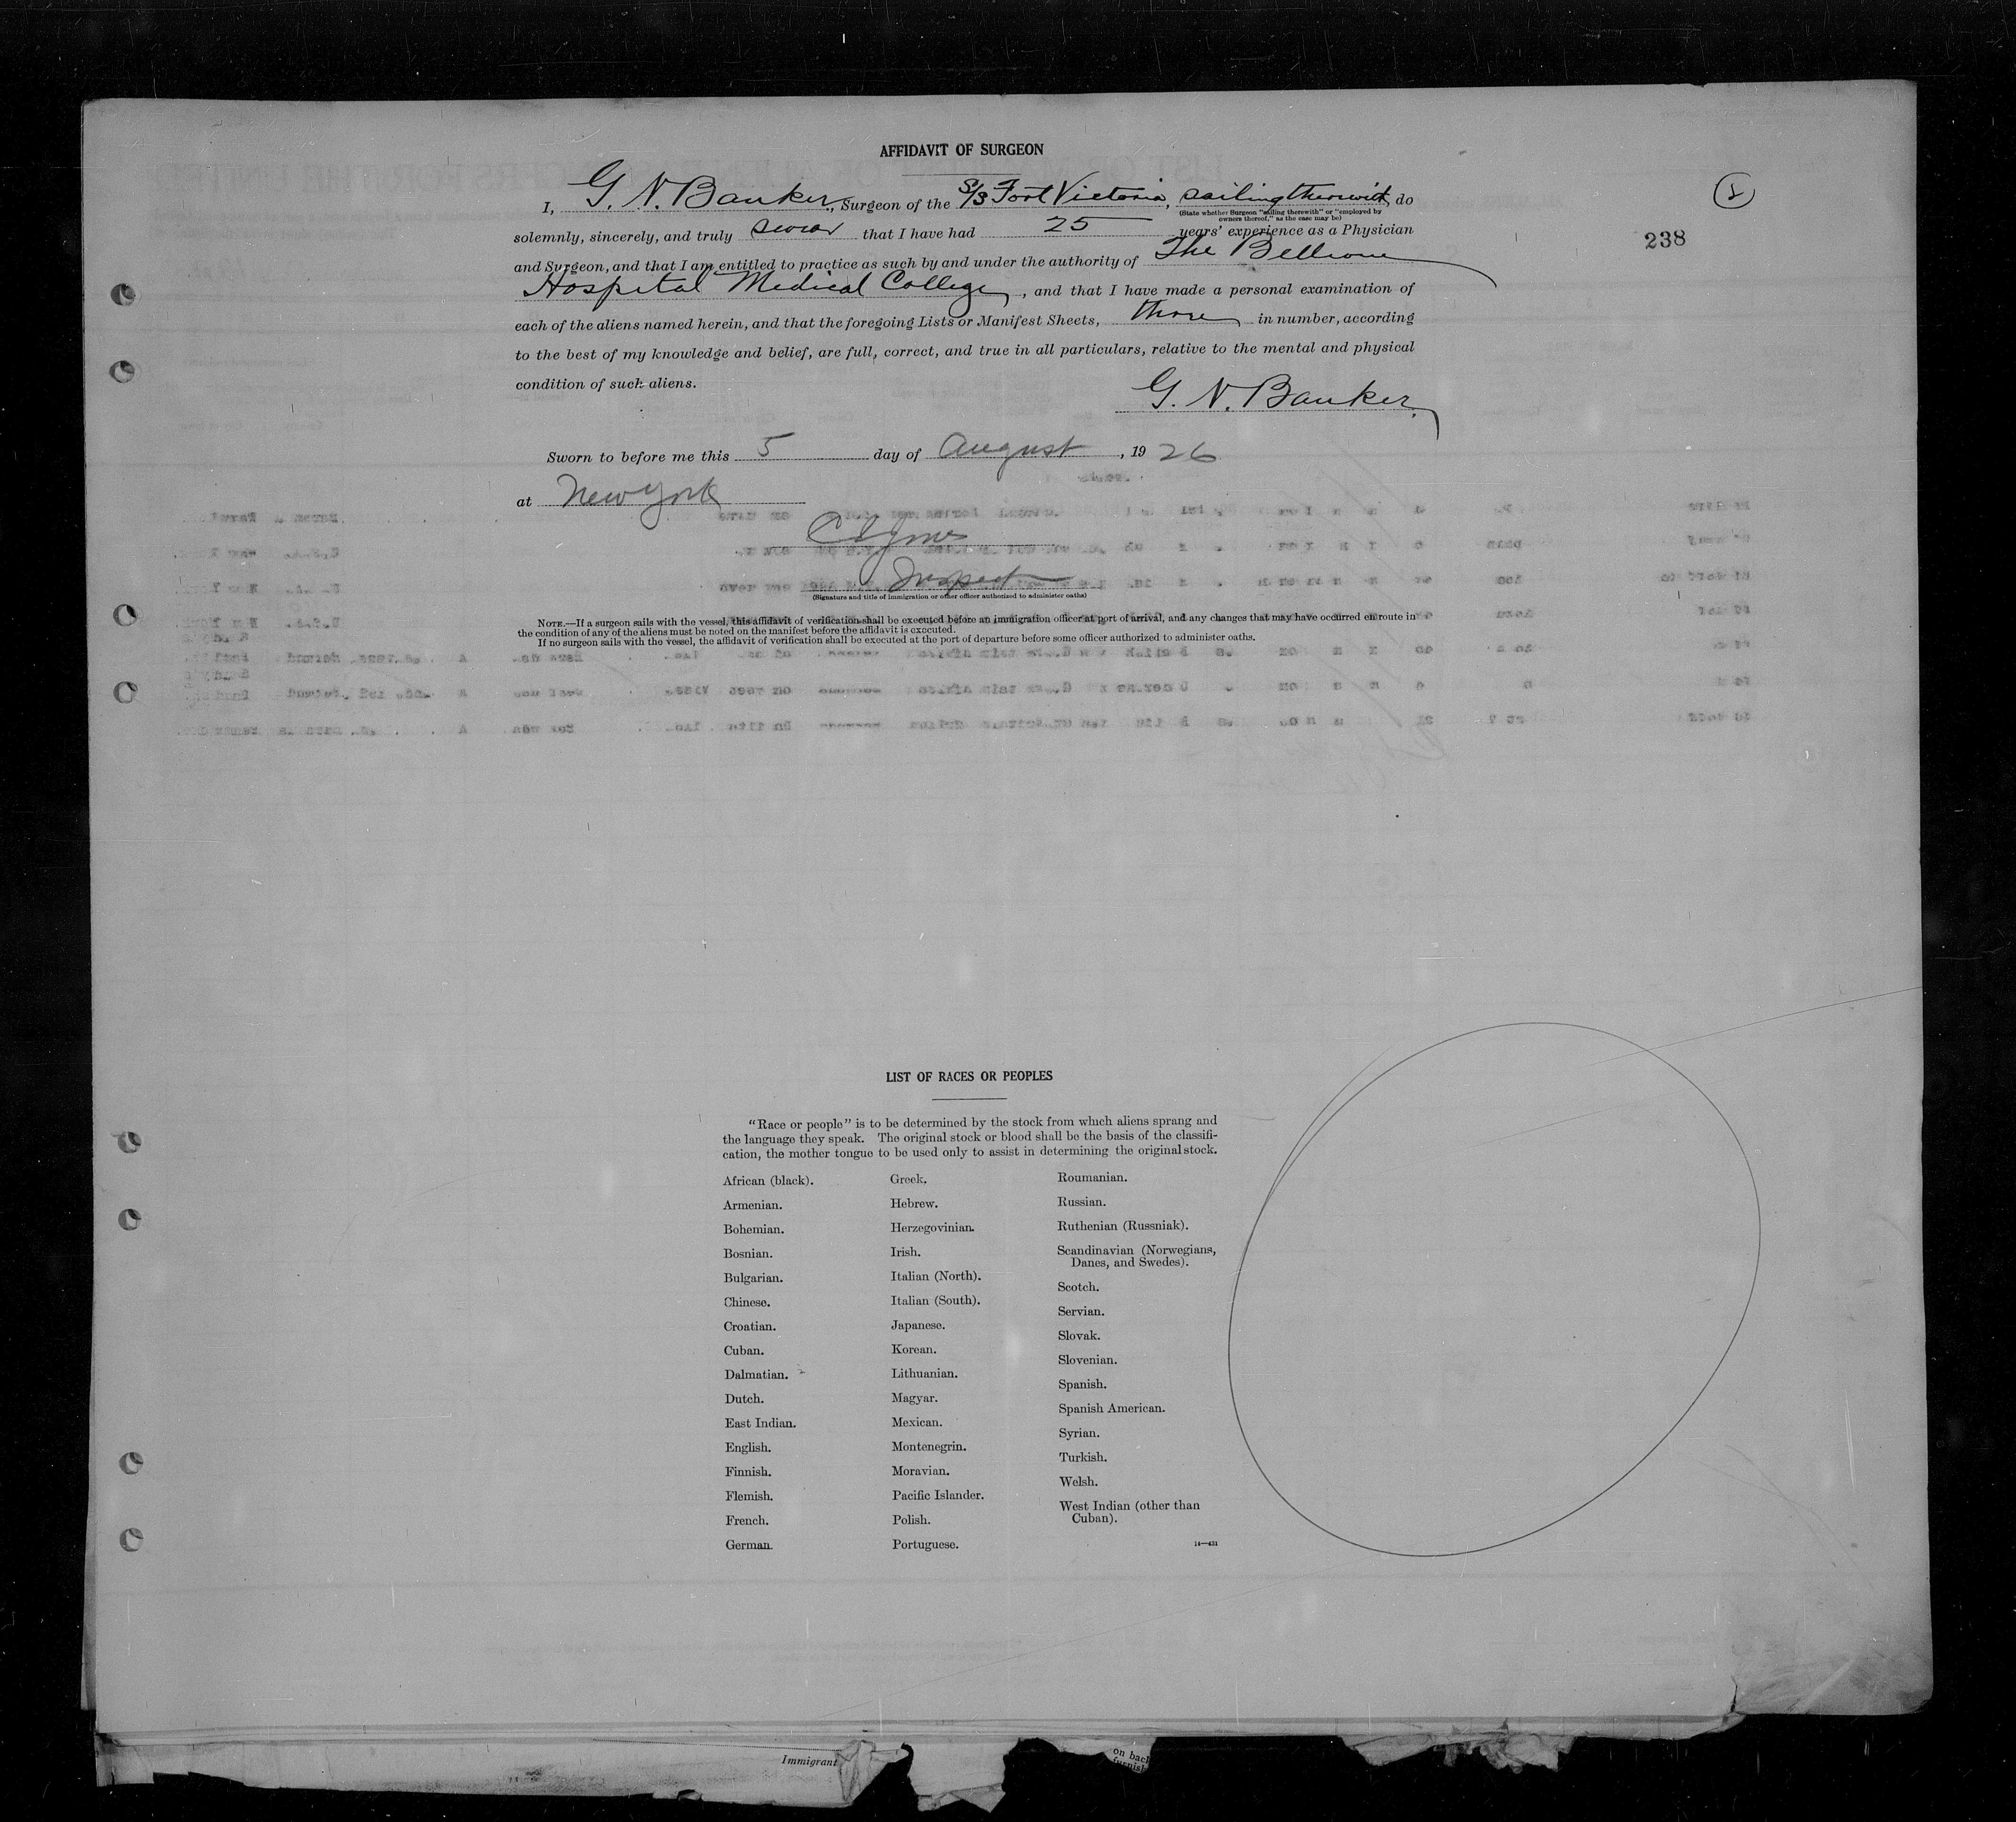 AFFIDAVIT OF SURGEON
8
238
I, G. N. Banker, Surgeon of the S/S Fort Victoria, sailing therewith, do
(State whether Surgeon "sailing therewith" or "employed by
owners thereof," as the case may be)
solemnly, sincerely, and truly swear that I have had 25 years' experience as a Physician
and Surgeon, and that I am entitled to practice as such by and under the authority of The Bellvue
Hospital Medical College, and that I have made a personal examination of
each of the aliens named herein, and that the foregoing Lists or Manifest Sheets, three in number, according
to the best of my knowledge and belief, are full, correct, and true in all particulars, relative to the mental and physical
condition of such aliens.
G. N. Banker.
Sworn to before me this 5 day of August, 1926
at New York
Inspector
(Signature and title of immigration or other officer authorized to administer oaths)
NOTE.—If a surgeon sails with the vessel, this affidavit of verification shall be executed before an immigration officer at port of arrival, and any changes that may have occurred en route in
the condition of any of the aliens must be noted on the manifest before the affidavit is executed.
If no surgeon sails with the vessel, the affidavit of verification shall be executed at the port of departure before some officer authorized to administer oaths.
LIST OF RACES OR PEOPLES
"Race or people" is to be determined by the stock from which aliens sprang and
the language they speak. The original stock or blood shall be the basis of the classifi-
cation, the mother tongue to be used only to assist in determining the original stock.
African (black).
Armenian.
Bohemian.
Bosnian.
Bulgarian.
Chinese.
Croatian.
Cuban.
Dalmatian.
Dutch.
East Indian.
English.
Finnish.
Flemish.
French.
German.
Greek.
Hebrew.
Herzegovinian.
Irish.
Italian (North).
Italian (South).
Japanese.
Korean.
Lithuanian.
Magyar.
Mexican.
Montenegrin.
Moravian.
Pacific Islander.
Polish.
Portuguese.
Roumanian.
Russian.
Ruthenian (Russniak).
Scandinavian (Norwegians,
Danes, and Swedes).
Scotch.
Servian.
Slovak.
Slovenian.
Spanish.
Spanish American.
Syrian.
Turkish.
Welsh.
West Indian (other than
Cuban).
14—431
Immigrant
on back
furnish